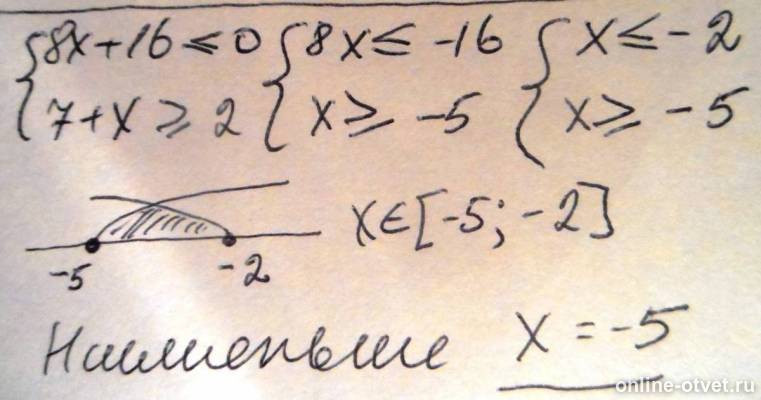 {8x+16≤0 {8x≤ -16 {x≤ -2
{7+x≥2 {x≥ -5 {x≥ -5
x∈[-5; -2]
-5 -2
Наименьшее x = -5
online-otvet.ru